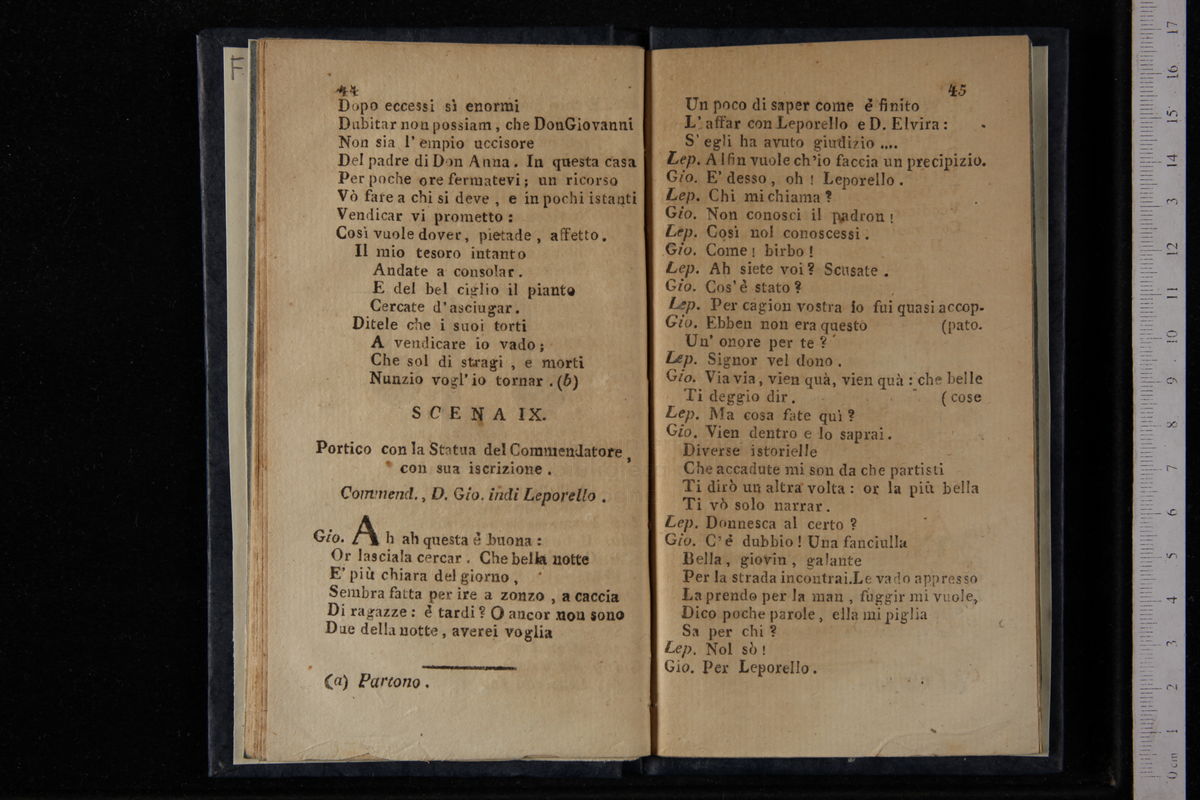 F
44
Dopo eccessi sì enormi
Dubitar non possiam, che DonGiovanni
Non sia l' empio uccisore
Del padre di Don Anna. In questa casa
Per poche ore fermatevi; un ricorso
Vò fare a chi si deve, e in pochi istanti
Vendicar vi prometto:
Così vuole dover, pietade, affetto.
Il mio tesoro intanto
Andate a consolar.
E del bel ciglio il pianto
Cercate d'asciugar.
Ditele che i suoi torti
A vendicare io vado;
Che sol di stragi, e morti
Nunzio vogl' io tornar. (b)
SCENA IX.
Portico con la Statua del Commendatore,
con sua iscrizione.
Commend., D. Gio. indi Leporello.
Gio. Ah ah questa è buona:
Or lasciala cercar. Che bella notte
E' più chiara del giorno,
Sembra fatta per ire a zonzo, a caccia
Di ragazze: è tardi? O ancor non sono
Due della notte, averei voglia
(a) Partono.
45
Un poco di saper come è finito
L' affar con Leporello e D. Elvira:
S' egli ha avuto giudizio ....
Lep. Alfin vuole ch'io faccia un precipizio.
Gio. E' desso, oh! Leporello.
Lep. Chi mi chiama?
Gio. Non conosci il padron!
Lep. Così nol conoscessi.
Gio. Come! birbo!
Lep. Ah siete voi? Scusate.
Gio. Cos' è stato?
Lep. Per cagion vostra io fui quasi accop-
Gio. Ebben non era questo (pato.
Un' onore per te?
Lep. Signor vel dono.
Gio. Via via, vien quà, vien quà: che belle
Ti deggio dir. (cose
Lep. Ma cosa fate quì?
Gio. Vien dentro e lo saprai.
Diverse istorielle
Che accadute mi son da che partisti
Ti dirò un altra volta: or la più bella
Ti vò solo narrar.
Lep. Donnesca al certo?
Gio. C' è dubbio! Una fanciulla
Bella, giovin, galante
Per la strada incontrai. Le vado appresso
La prendo per la man, fuggir mi vuole,
Dico poche parole, ella mi piglia
Sa per chi?
Lep. Nol sò!
Gio. Per Leporello.
0 cm 1 2 3 4 5 6 7 8 9 10 11 12 3 14 15 16 17